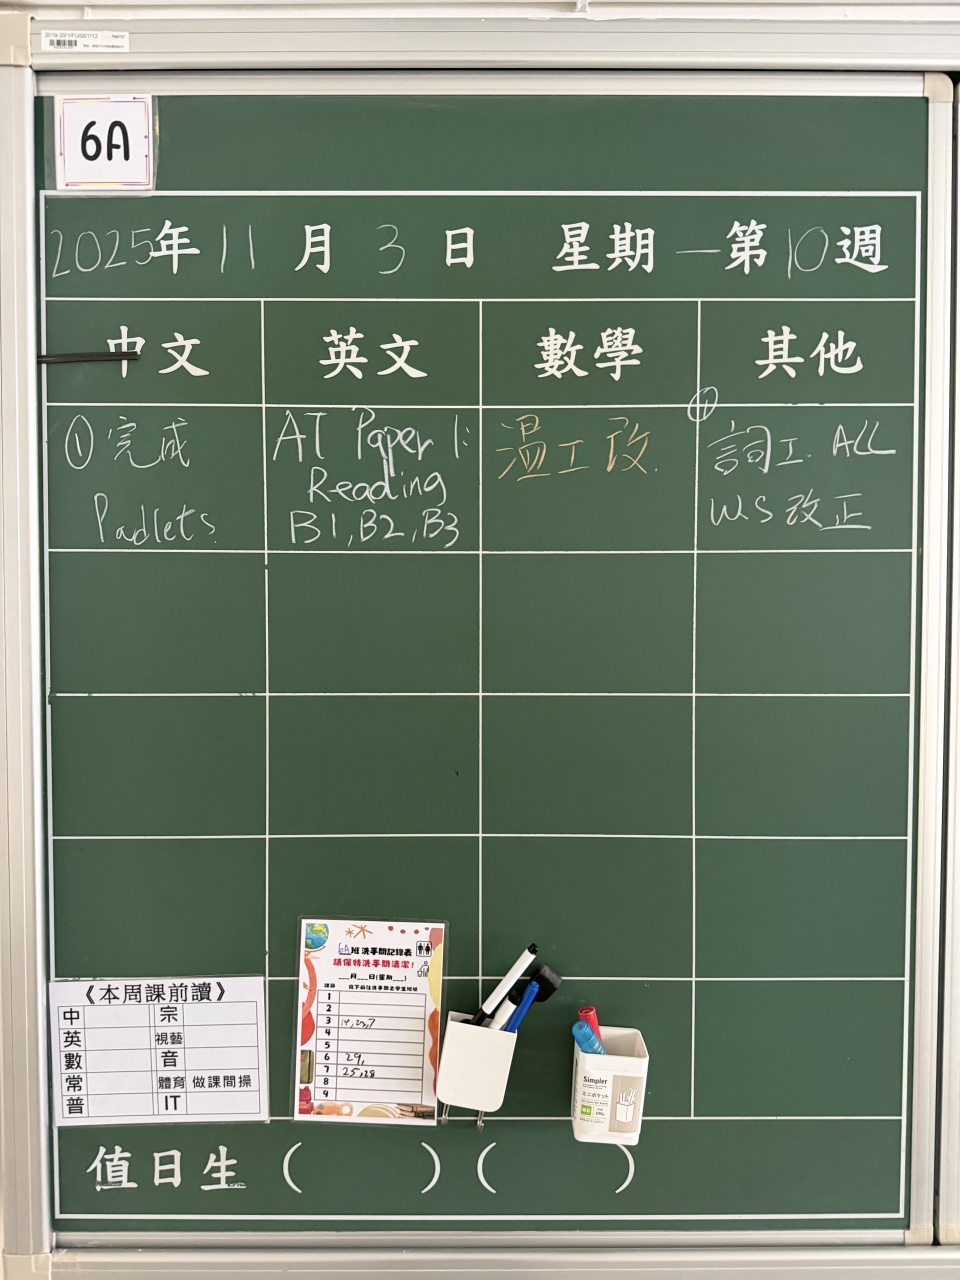 6A
2025年11月3日 星期一 第10週
中文 英文 數學 其他
①完成
Padlets.
AT Paper 1:
Reading
B1,B2,B3
溫工改.
⑪
詞工. ALL
WS改正
《本周課前讀》
中 宗
英 視藝
數 音
常 體育 做課間操
普 IT
6A班洗手間記錄表
請保持洗手間清潔!
___月___日(星期___)
1
2
3 14,23,7
4
5
6 29,
7 25,28
8
9
Simpler
ミニポケット
值日生 ( ) ( )